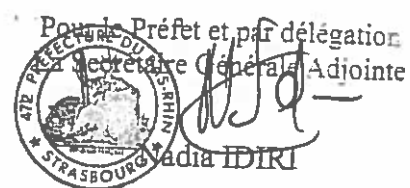 Pour le Préfet et par délégation
La Secrétaire Générale Adjointe
472 PRÉFECTURE DU BAS-RHIN
* STRASBOURG *
Nadia IDIRI